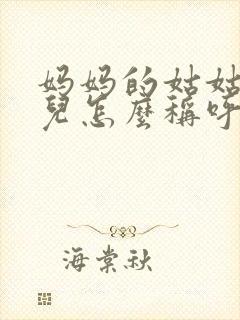 妈妈的姑姑
兒怎麼稱呼
海棠秋